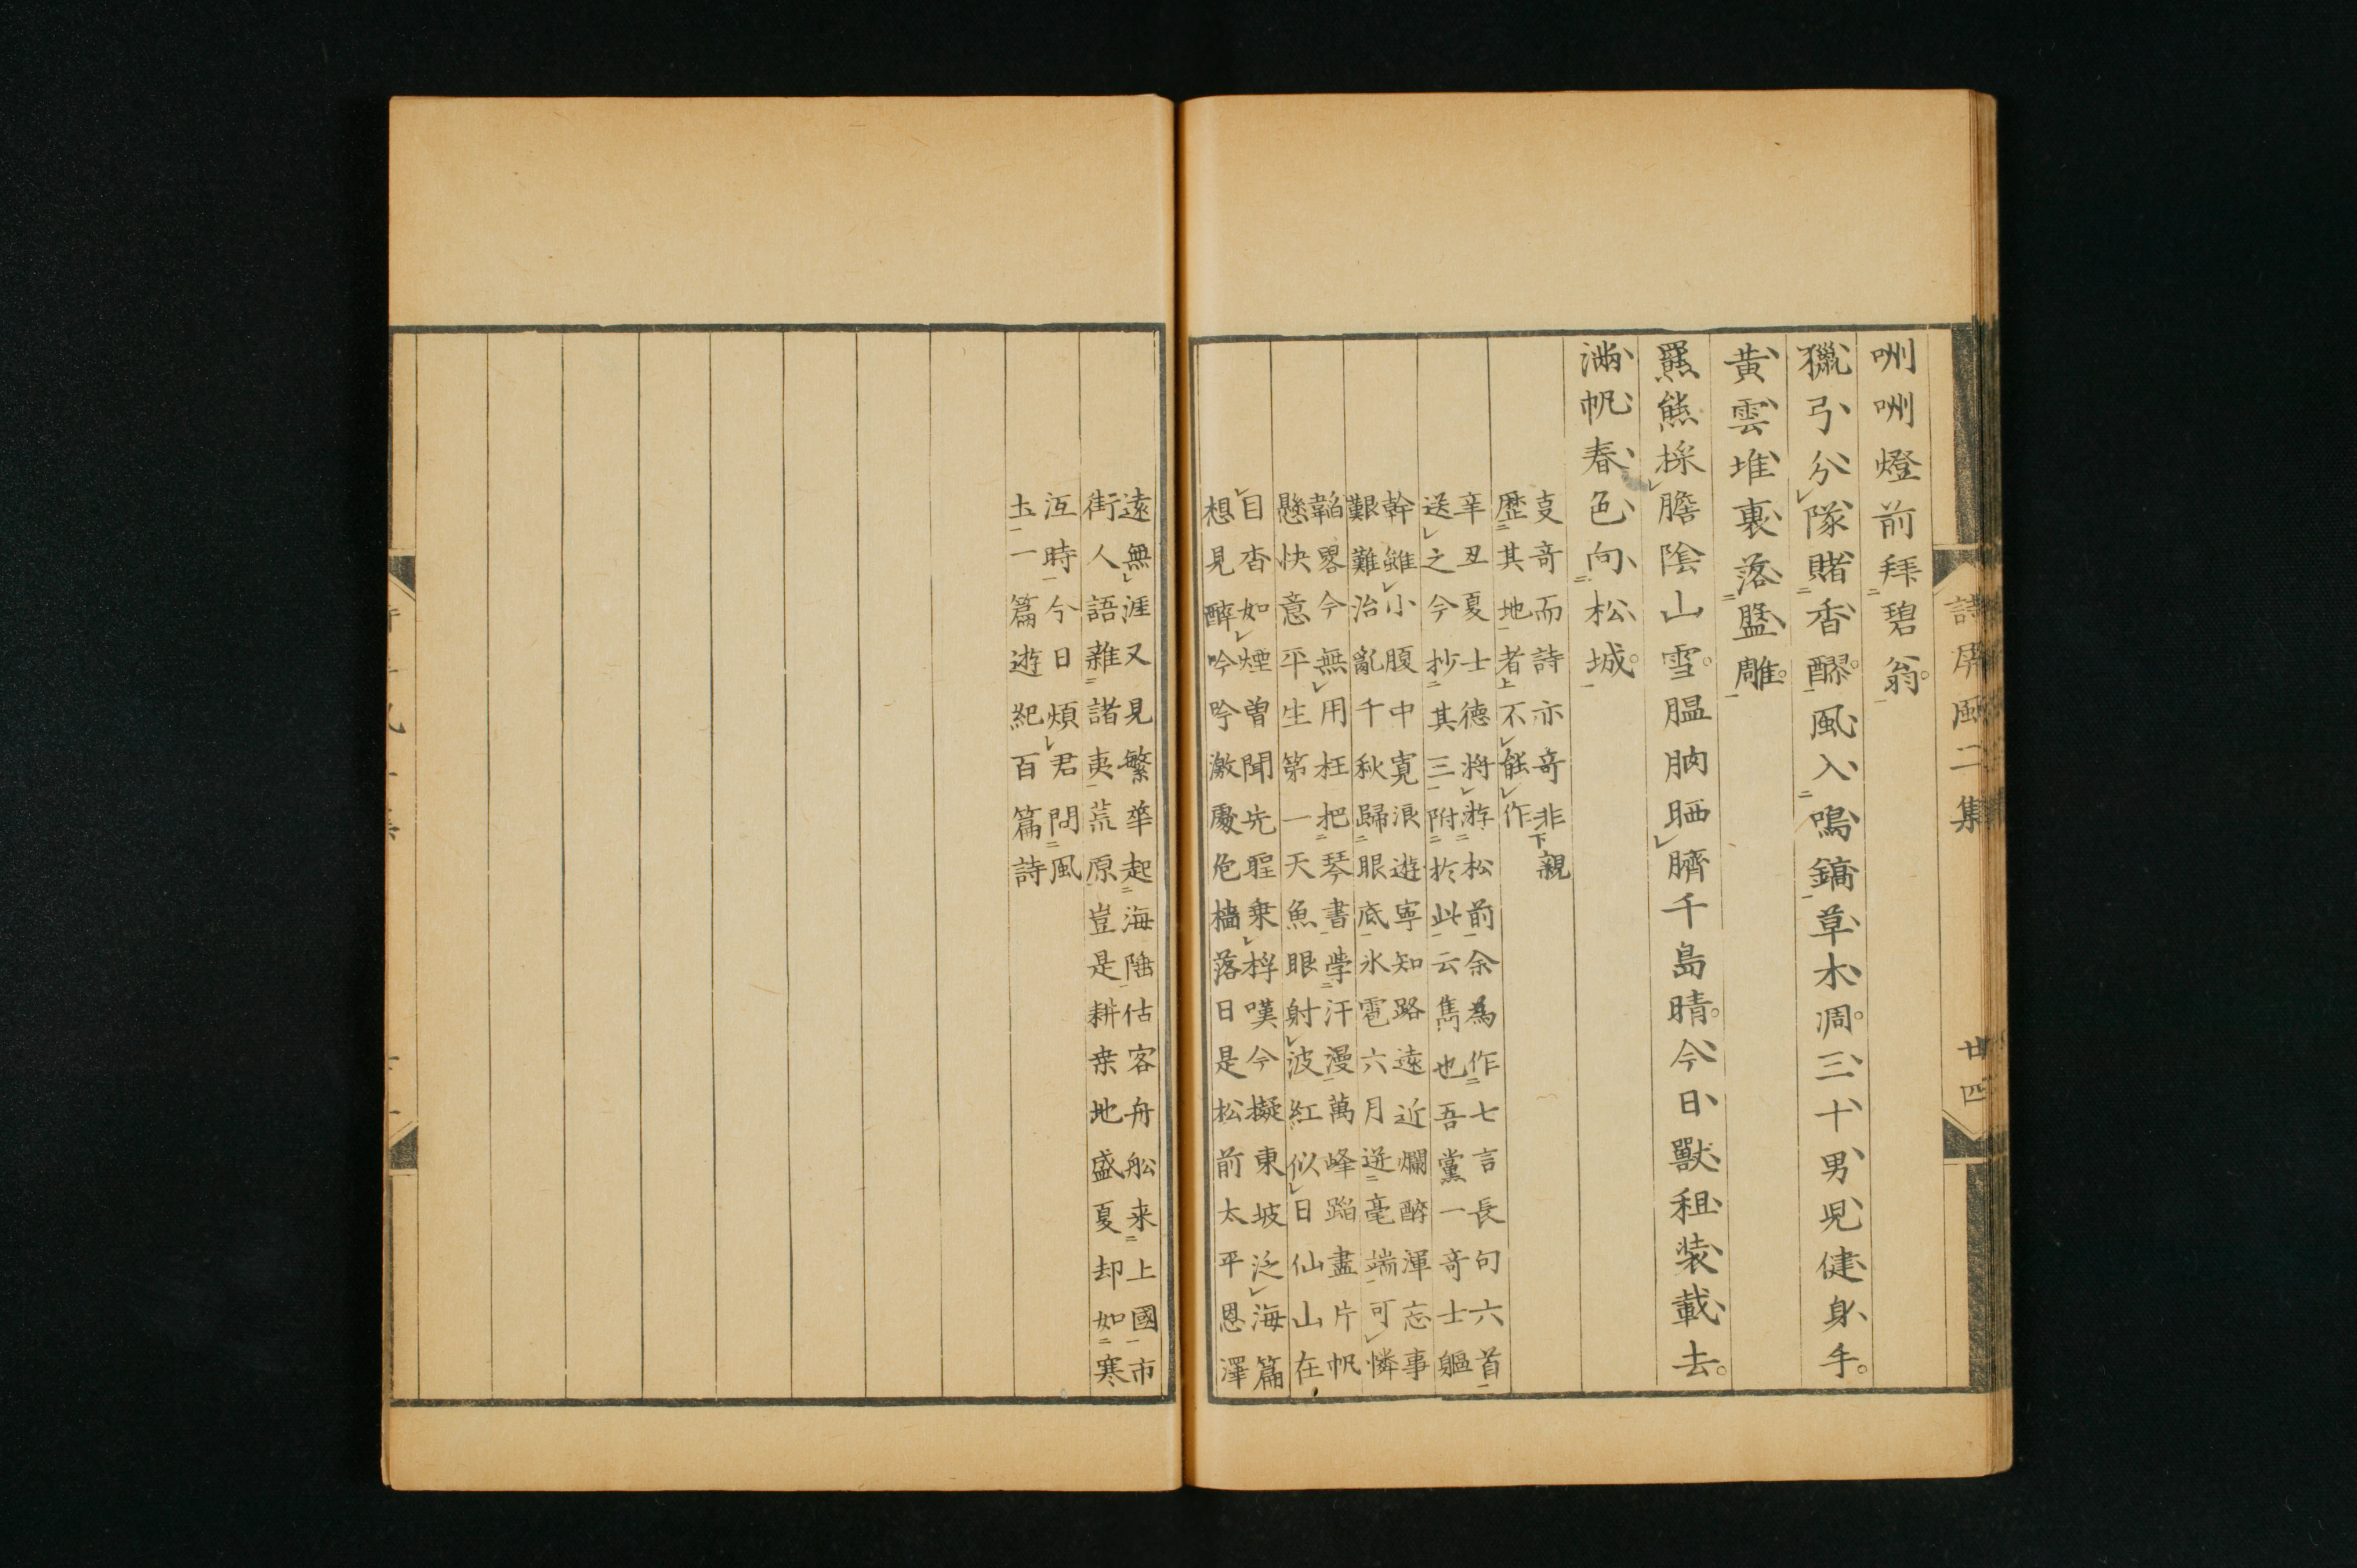 詩屏風二集
廿四
咻咻燈前拜碧翁
獵弓分隊賭香醪風入鳴鏑草木凋三十男兒健身手
黃雲堆裏落盤雕
羆熊採膽陰山雪膃肭晒臍千島晴今日獸租裝載去
滿帆春色向松城
支奇而詩亦奇非親
歷其地者不能作
辛丑夏士德將游松前余為作七言長句六首
送之今抄其三附於此云雋也吾黨一奇士軀
幹雖小腹中寬浪遊寧知路遠近爛醉渾忘事
艱難治亂千秋歸眼底氷雹六月迸毫端可憐
韜畧今無用枉把琴書學汗漫萬峰蹈盡片帆
懸快意平生第一天魚眼射波紅似日仙山在
目杳如煙曽聞先聖乗桴嘆今擬東坡泛海篇
想見醉吟吟激處危檣落日是松前太平恩澤
遠無涯又見繁華起海陲估客舟舩来上國市
街人語雜諸夷荒原豈是耕桒地盛夏却如寒
沍時今日煩君問風
土一篇遊紀百篇詩